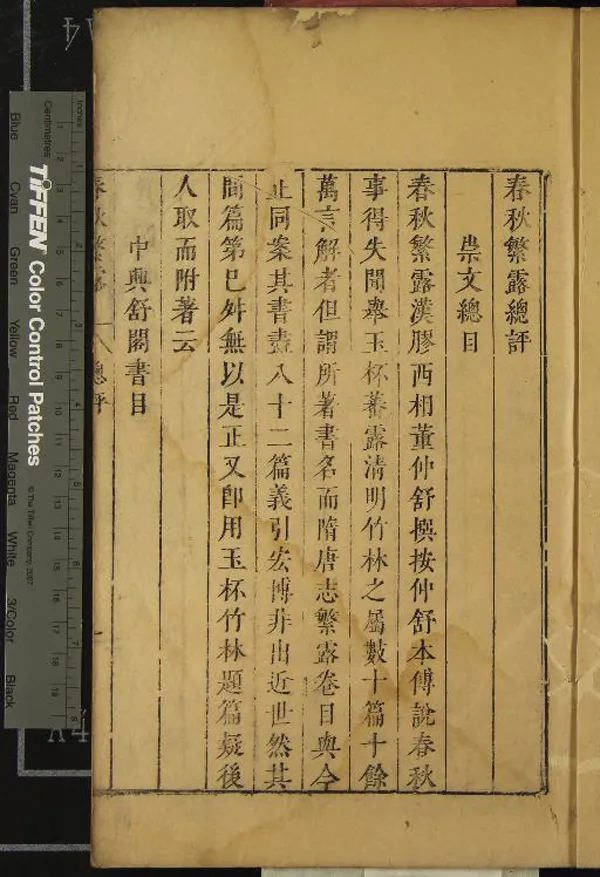 春秋繁露總評
崇文總目
春秋繁露漢膠西相董仲舒撰按仲舒本傳說春秋
事得失聞舉玉杯蕃露清明竹林之屬數十篇十餘
萬言解者但謂所著書名而隋唐志繁露卷目與今
正同案其書盡八十二篇義引宏博非出近世然其
間篇第已舛無以是正又卽用玉杯竹林題篇疑後
人取而附著云
中興舒閣書目
春秋繁露 總評
Inches
Centimetres
TIFFEN Color Control Patches
© The Tiffen Company, 2007
Blue Cyan Green Yellow Red Magenta White 3/Color Black